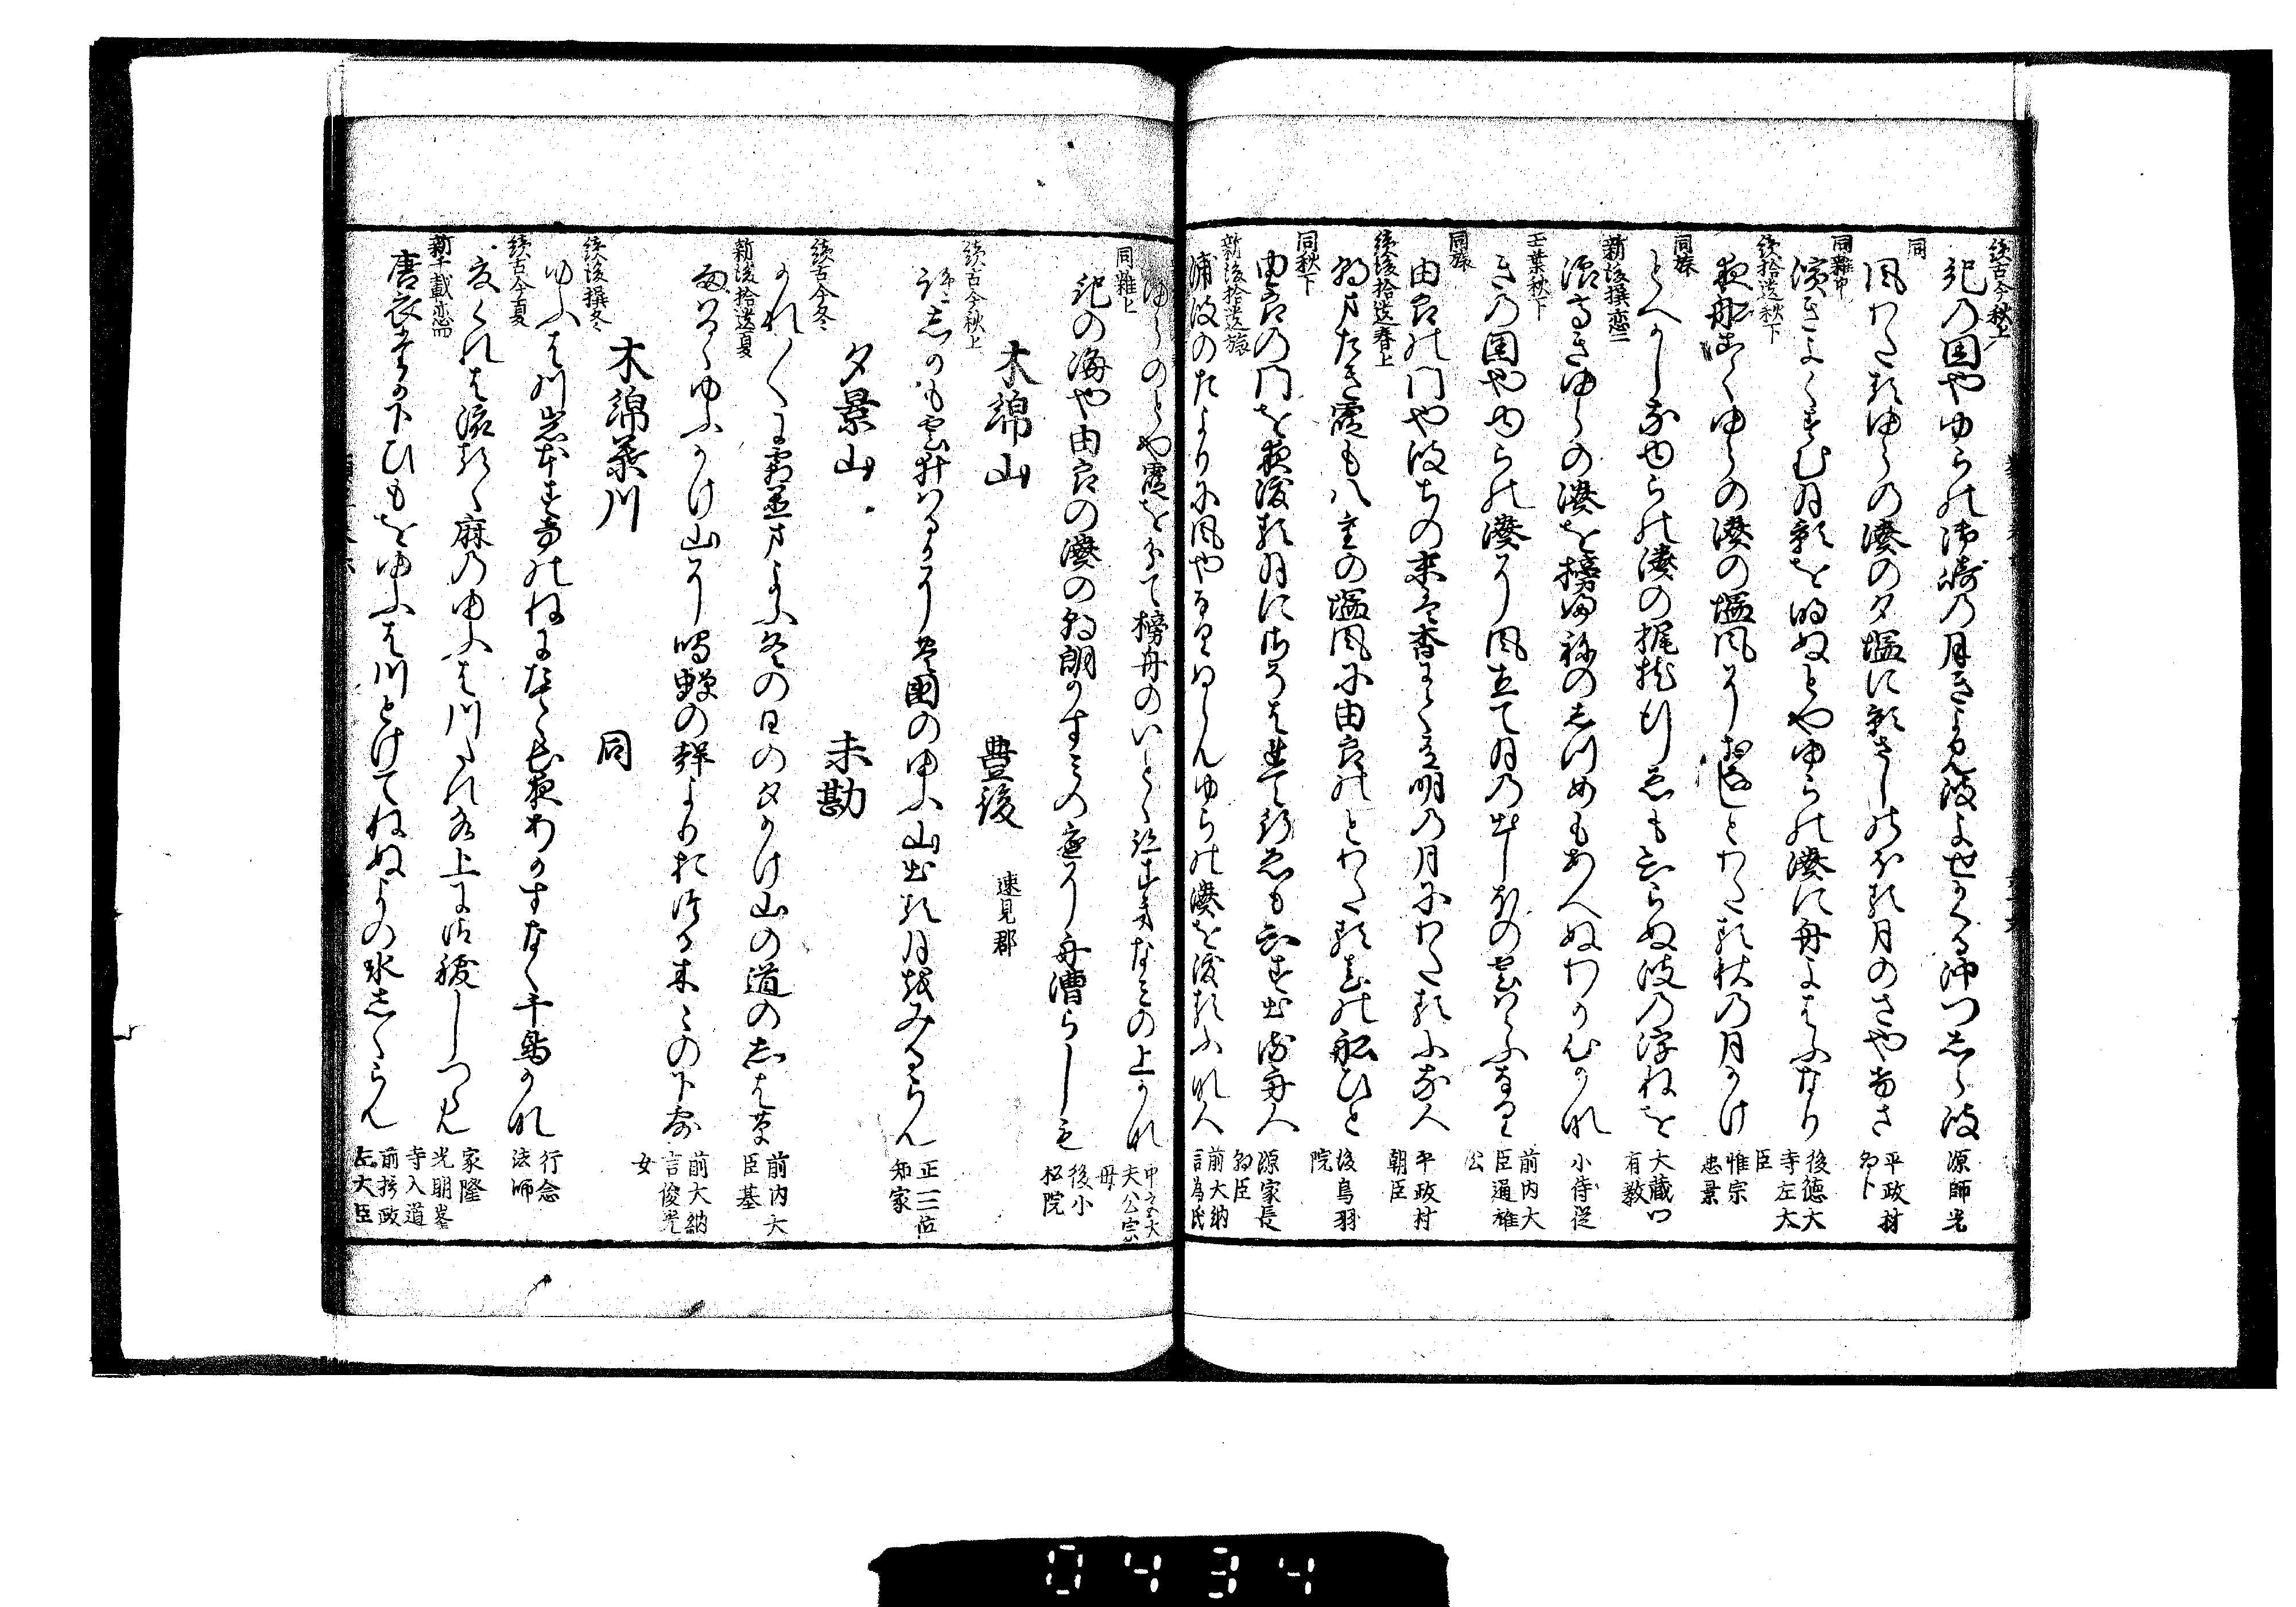 続古今秋上
紀の国やゆらの御崎の月きよみ波よせかくる沖つしら波 源師光
同
風わたるゆらの湊の夕塩に影さしのほる月のさやけさ 平政村
同雜中
濱きよくすむ月影を明ぬとやゆらの湊に舟よはふなり 後德大寺左大臣
続拾遺秋下
夜舩こくゆらの湊の塩風におなしとわたる秋の月かけ 惟宗忠景
同旅
とへかしなゆらの湊の梶枕行ゑもしらぬ波の浮ねを 大蔵卿有教
新後撰恋二
浪たかきゆらの湊を榜ふねのしつめもあへぬわか心かな 小侍従
玉葉秋下
きの国やゆらの湊に風立て月の出しほの雲はらふなり 前内大臣通雄公
同旅
由良の門や波ちの末は杳にて有明の月にわたるふな人 平政村朝臣
続後拾遺春上
朝またき霞も八重の塩風に由良のとわたる春の舩ひと 後鳥羽院
同秋下
由良の門を夜渡る月にさそはれて行ゑもしらす出る舟人 源家長朝臣
新後拾遺旅
浦波のたよりに風やなりぬらんゆらの湊を渡るふな人 前大納言為氏
同雜上
ゆらのとや霞をわて榜舟のいとゝなみの上かな 中宮大夫公宗母
紀の海や由良の湊の朝朗かすみの遠に舟漕らしも 後小松院
木綿山 豊後 速見郡
続古今秋上
をしかも雲井はるかに国のゆふ山出る月をみるらん 正三位知家
夕景山 未勘
続古今冬
かれ〳〵に霜置まよふ冬の日の夕かけ山の道のしは草 前内大臣基
新後拾遺夏
聲たかくゆふかけ山に鳴蟬の聲よりおつる木々の下露 前大納言俊光女
木綿葉川 同
続後撰冬
ゆふは川岩もとすけのねにたてゝ長夜あかすなく千鳥かな 行念法師
続古今夏
夏くれは流るゝ麻のゆふは川たれ水上に御祓しつらん 家隆
新千載恋四
唐衣すその下ひもをゆふは川とけてねぬよの水しくらん 光明峯寺入道前摂政左大臣
0434